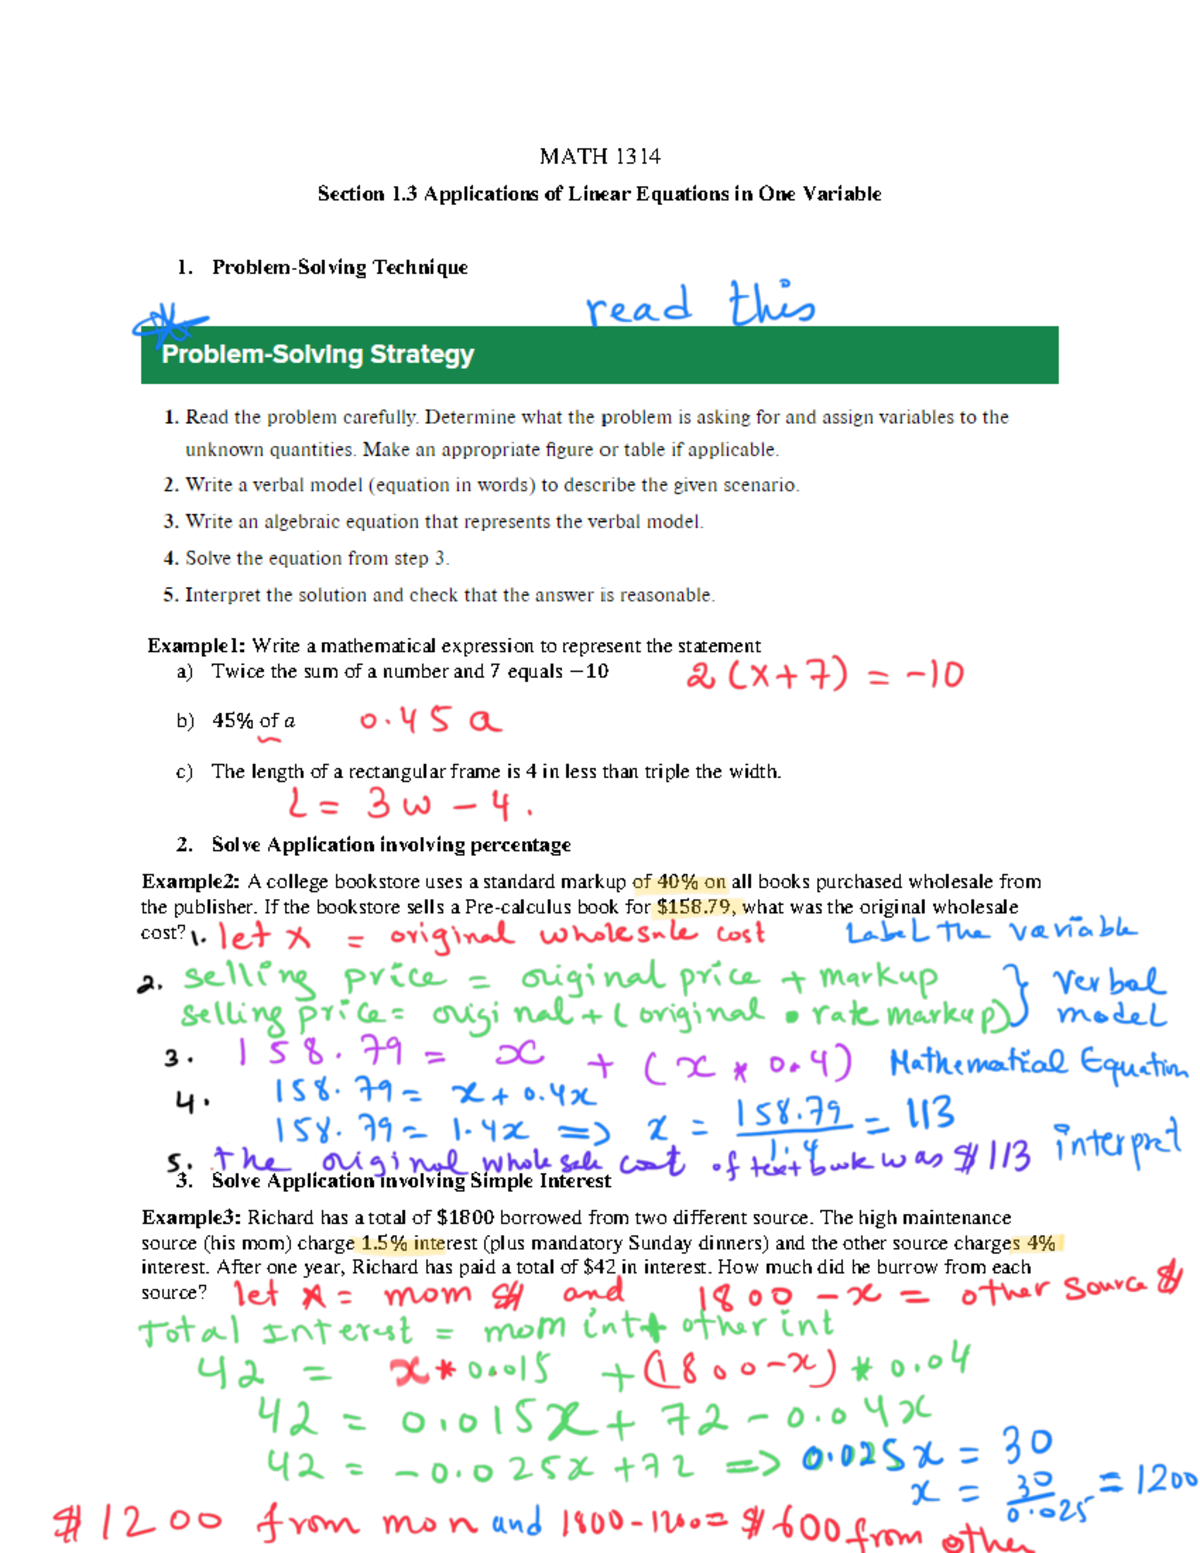 MATH 1314
Section 1.3 Applications of Linear Equations in One Variable
1. Problem-Solving Technique
read this
Problem-Solving Strategy
1. Read the problem carefully. Determine what the problem is asking for and assign variables to the
unknown quantities. Make an appropriate figure or table if applicable.
2. Write a verbal model (equation in words) to describe the given scenario.
3. Write an algebraic equation that represents the verbal model.
4. Solve the equation from step 3.
5. Interpret the solution and check that the answer is reasonable.
Example1: Write a mathematical expression to represent the statement
a) Twice the sum of a number and 7 equals −10 2(x+7) = -10
b) 45% of a 0.45 a
c) The length of a rectangular frame is 4 in less than triple the width.
L = 3w - 4.
2. Solve Application involving percentage
Example2: A college bookstore uses a standard markup of 40% on all books purchased wholesale from
the publisher. If the bookstore sells a Pre-calculus book for $158.79, what was the original wholesale
cost? 1. let x = original wholesale cost Label the variable
2. selling price = original price + markup
selling price = original + (original • rate markup) } verbal model
3. 158.79 = x + (x * 0.4) Mathematical Equation
4. 158.79 = x + 0.4x
158.79 = 1.4x => x = 158.79/1.4 = 113
5. the original wholesale cost of text book was $113 interpret
3. Solve Application involving Simple Interest
Example3: Richard has a total of $1800 borrowed from two different source. The high maintenance
source (his mom) charge 1.5% interest (plus mandatory Sunday dinners) and the other source charges 4%
interest. After one year, Richard has paid a total of $42 in interest. How much did he burrow from each
source? let x = mom $ and 1800 - x = other source $
Total Interest = mom int + other int
42 = x * 0.015 + (1800-x) * 0.04
42 = 0.015x + 72 - 0.04x
42 = -0.025x + 72 => 0.025x = 30
x = 30/0.025 = 1200
$1200 from mon and 1800-1200 = $600 from other